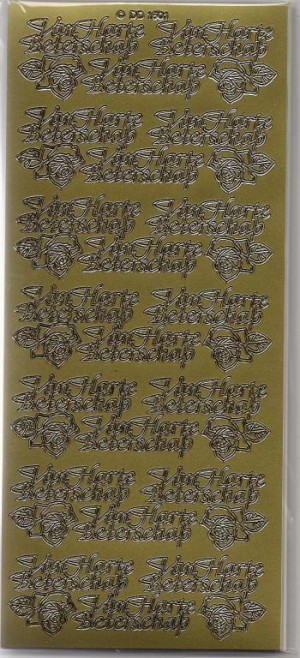 © DD 1501
Van Harte Van Harte
Beterschap Beterschap
Van Harte
Beterschap
Van Harte Van Harte
Beterschap Beterschap
Van Harte
Beterschap
Van Harte Van Harte
Beterschap Beterschap
Van Harte
Beterschap
Van Harte Van Harte
Beterschap Beterschap
Van Harte
Beterschap
Van Harte Van Harte
Beterschap Beterschap
Van Harte
Beterschap
Van Harte Van Harte
Beterschap Beterschap
Van Harte
Beterschap
Van Harte Van Harte
Beterschap Beterschap
Van Harte
Beterschap